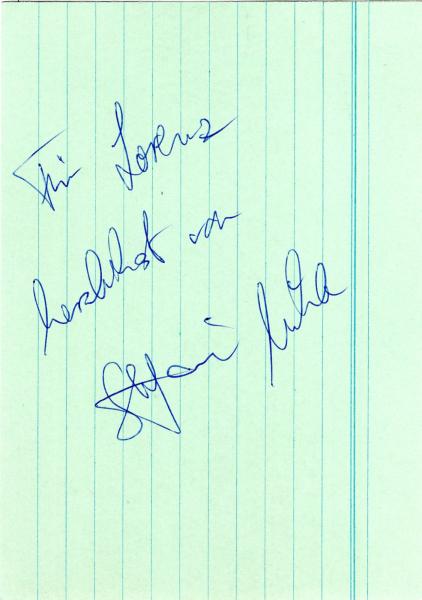 Für Lorenz
herzlichst von
Stefanie